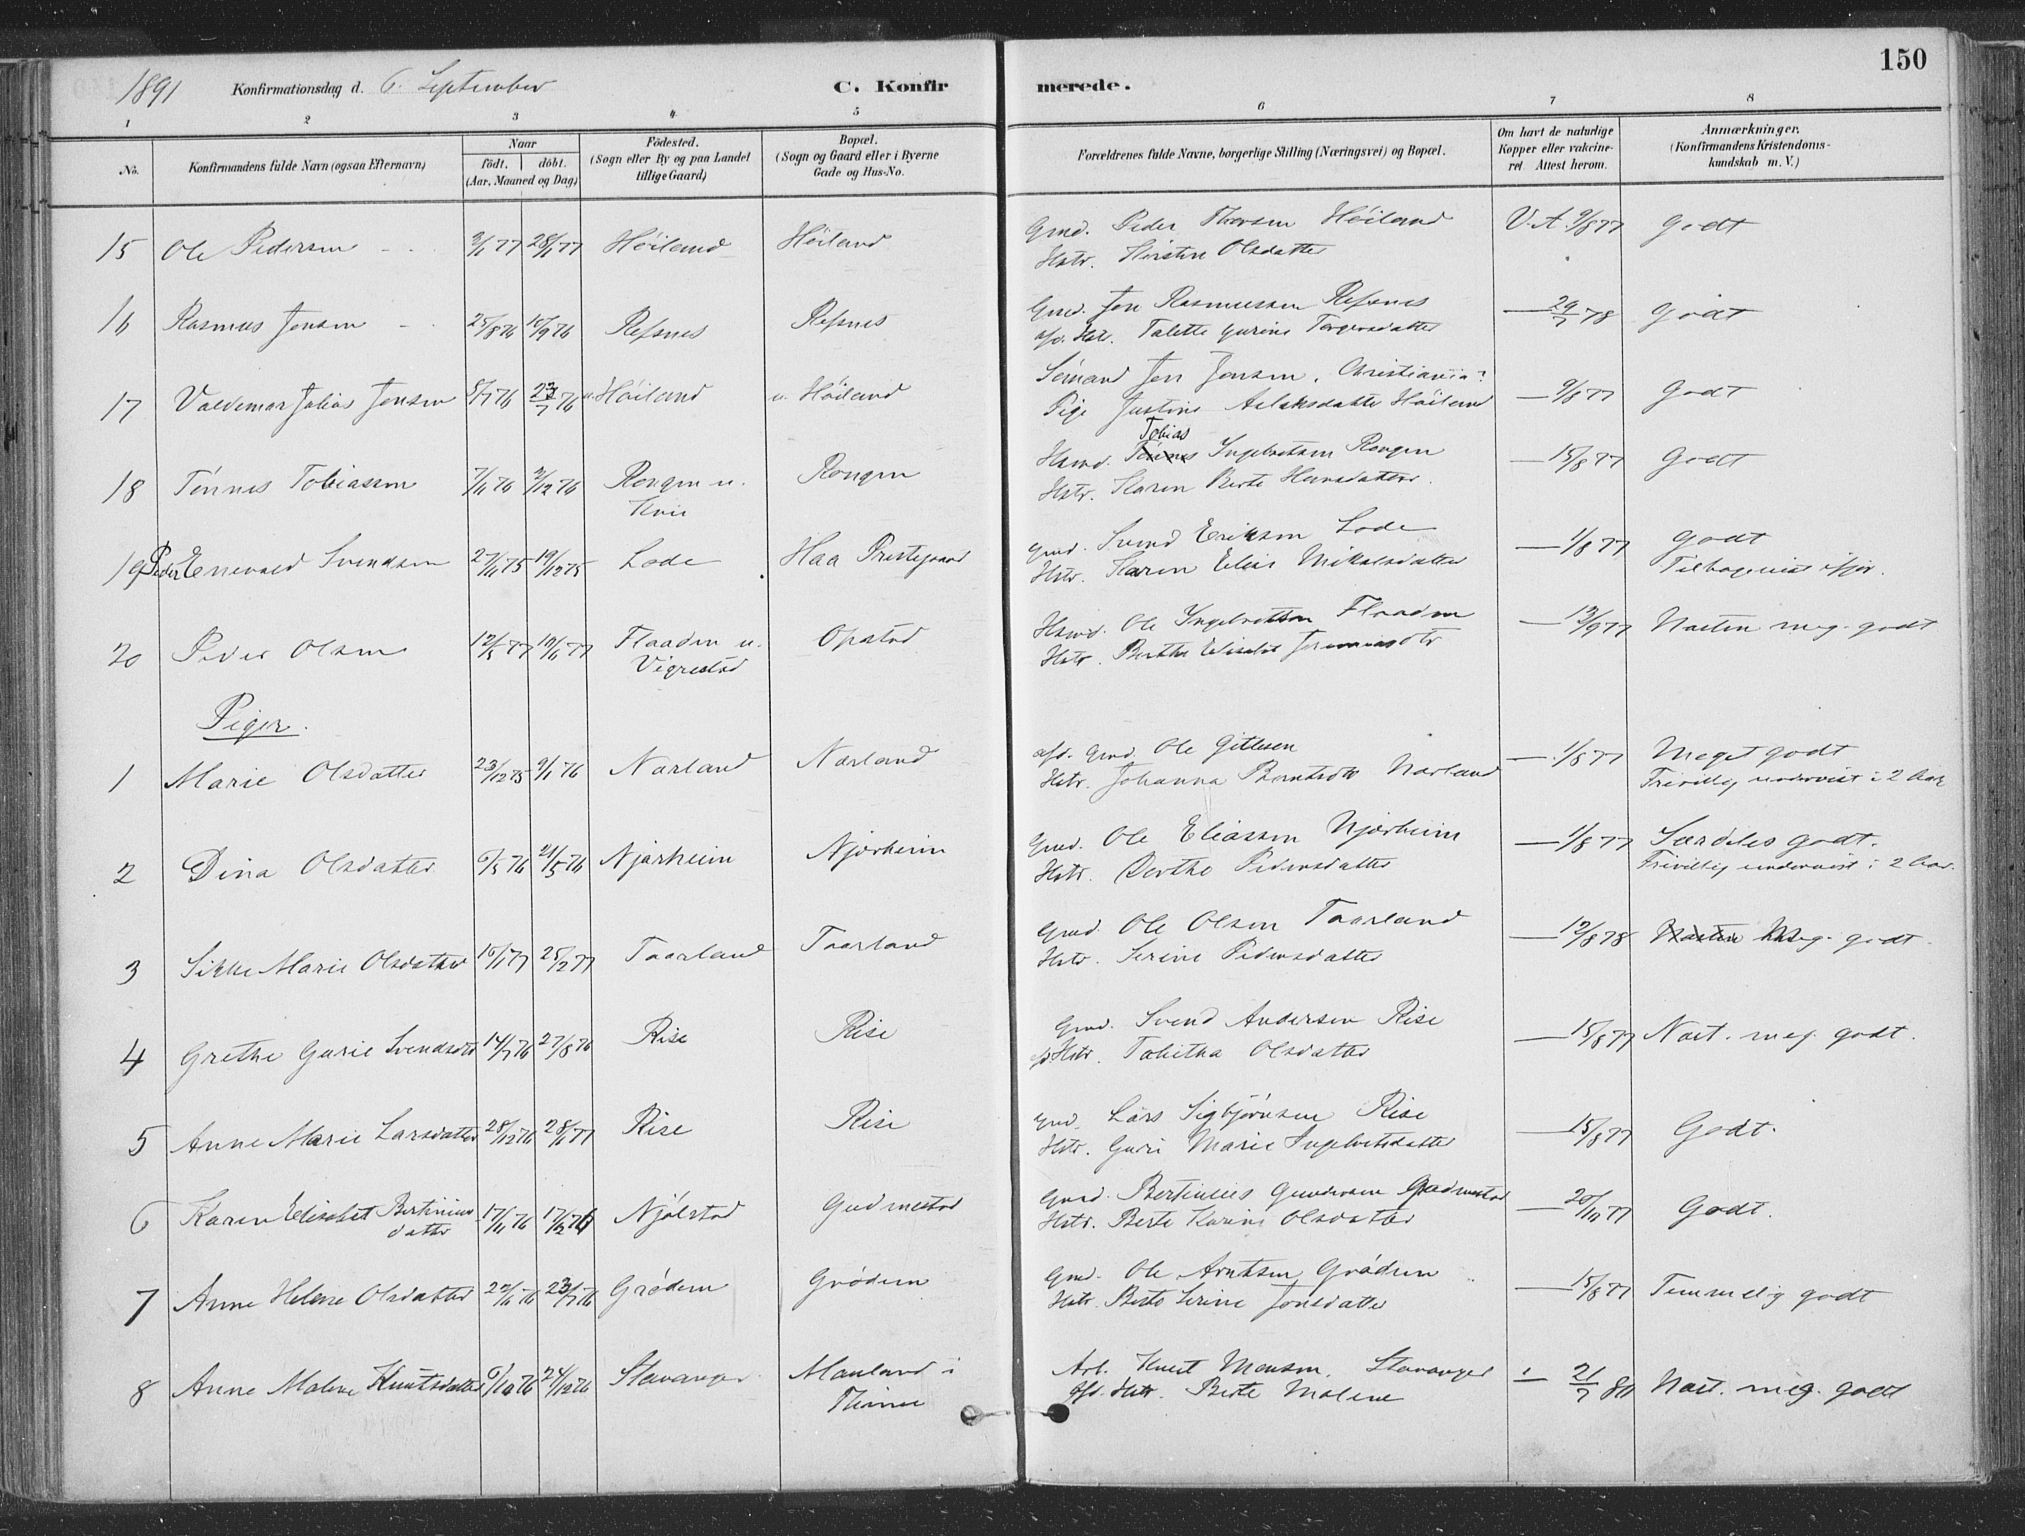 150
1891 Konfirmationsdag d. 6. September C. Konfirmerede.
1 2 3 4 5 6 7 8
No. Konfirmandens fulde Navn (ogsaa Efternavn) Naar født. døbt. (Aar, Maaned og Dag) Fødested. (Sogn eller By og paa Landet tillige Gaard) Bopæl. (Sogn og Gaard eller i Byerne Gade og Hus-No. Forældrenes fulde Navne, borgerlige Stilling (Næringsvei) og Bopæl. Om havt de naturlige Kopper eller vakcineret Attest herom. Anmærkninger. (Konfirmandens Kristendomskundskab m. V.)
15 Ole Pedersen 28/1 77 Høiland Høiland Gmd. Peder Thorsen Høiland V. A. 9/8 77 Godt
Hstr. Kirsten Olsdatter
16 Rasmus Jonsen 25/8 76 10/9 76 Refsnes Refsnes Gmd. Jon Rasmussen Refsnes — 29/7 78 Godt
afd. Hstr. Talette Gurine Torgersdatter
17 Valdemar Julius Jonsen 8/7 76 23/7 76 u. Høiland u. Høiland Sømand Jon Jonsen, Christiania? — 9/8 77 Godt
Pige Justine Aslaksdatter Høiland
18 Tønnes Tobiassen 7/11 76 3/12 76 Rongen u. Kvie Rongen Husmd. Tobias Ingebretsen Rongen — 15/8 77 Godt
Hstr. Karen Berte Hansdatter.
19 Peder Enevald Svendsen 27/11 75 19/12 75 Lode Haa Prestegaard Gmd. Svend Eriksen Lode — 1/8 77 Godt
Hstr. Karen Elias Mikalsdatter Tilbagevist ifjor.
20 Peder Olsen 12/5 77 10/6 77 Flaaden u. Vigrestad Opstad Husmd. Ole Ingebretsen Flaaden — 12/9 77 Næsten meg. godt
Hstr. Berthe Elisabet
Piger.
1 Marie Olsdatter 23/12 75 9/1 76 Nærland Nærland afd. Gmd. Ole Gitlesen — 1/8 77 Meget godt
Hstr. Johanna Berntsdtr Nærland Frivillig undervist i 2 Aar
2 Dina Olsdatter 6/5 76 21/5 76 Njærheim Njærheim Gmd. Ole Eliassen Njærheim — 1/8 77 Særdeles godt.
Hstr. Berthe Pedersdatter Frivillig undervist i 2 Aar.
3 Sikke Marie Olsdatter 16/1 77 25/2 77 Taarland Taarland Gmd. Ole Olsen Taarland — 12/8 78 Næsten Meg. godt.
Hstr. Serine Pedersdatter
4 Grethe Gurie Svendsdtr 14/7 76 27/8 76 Rise Rise Gmd. Svend Andersen Rise — 15/8 77 Næst. meg. godt.
Hstr. Tabitha Olsdatter
5 Anne Marie Larsdatter 28/12 76 28/1 77 Rise Rise Gmd. Lars Sigbjørnsen Rise — 15/8 77 Godt.
Hstr. Guri Marie Ingebretsdatter
6 Karen Elisabet Bertiniusdatter 17/11 76 17/12 76 Njølstad Gudmestad Gmd. Bertinius Gundersen Gudmestad — 20/10 77 Godt.
Hstr. Berte Karine Olsdatter
7 Anne Helene Olsdatter 22/6 76 23/7 76 Grødem Grødem Gmd. Ole Arntsen Grødem — 15/8 77 Temmelig godt
Hstr. Berte Serine Jonsdatter
8 Anne Malene Knutsdatter 6/10 76 24/12 76 Stavanger Mauland i Time Arb. Knut Monsen, Stavanger — 21/7 80 Næst. meg. godt
Afd. Hstr. Berte Malene